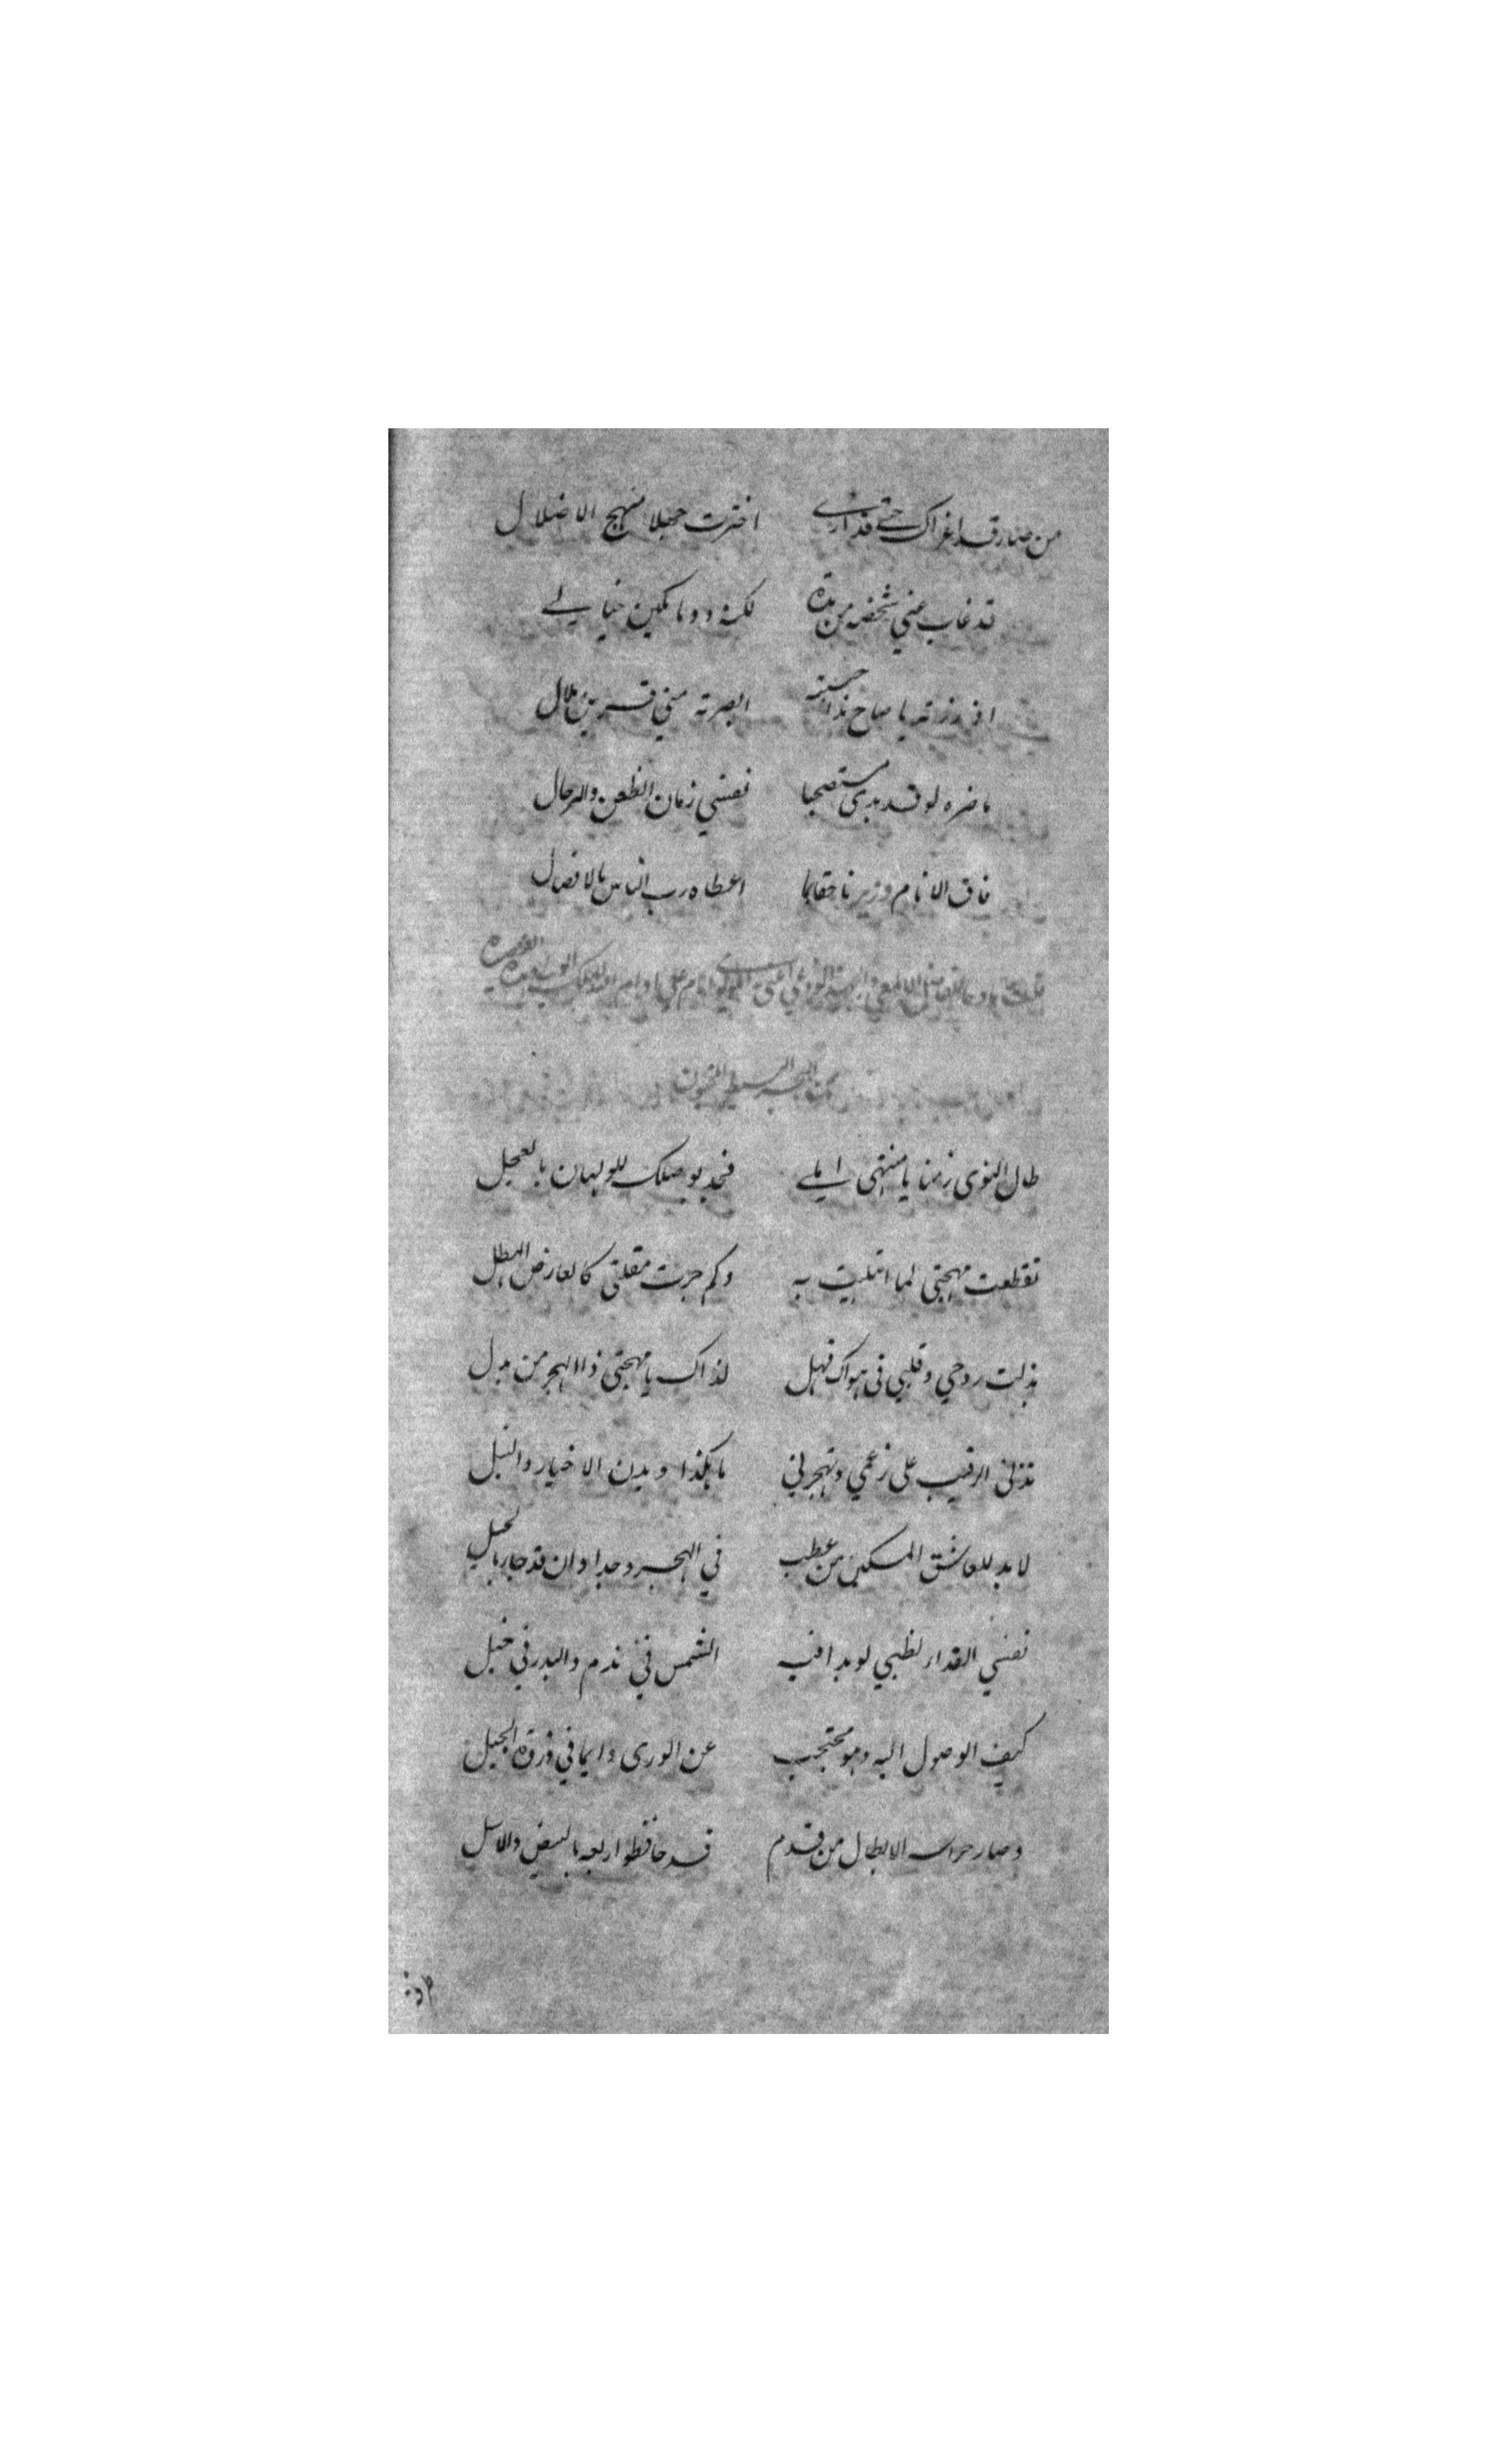 من صار قد اغراك حتى قد ارى اخترت جهلا منهج الاضلال
قد غاب عني شخصه من مدة لكنه دوما مكين خيالي
ان زرته يا صاح ذا حسنه ابصرته مني قرين ملال
ما ضره لو قد بدى مستصحبا نفسي زمان الظعن والترحال
فاق الانام وزيرنا حقا بما اعطاه رب الناس بالافضال
من البحر البسيط المخبون
طال النوى زمنا يا منتهى املي فجد بوصلك للولهان بالعجل
تقطعت مهجتي لما ابتليت به وكم جرت مقلتي كالعارض الهطل
بذلت روحي وقلبي في هواك فهل لذاك يا مهجتي ذا الهجر من بدل
تدني الرقيب على زعمي وتهجرني ما هكذا ديدن الاخيار والنبل
لا بد للعاشق المسكين من عطب في الهجر وجدا وان قد حار بالحيل
نفسي الفدا لظبي لو بدا فيه الشمس في ندم والبدر في خجل
كيف الوصول اليه وهو محتجب عن الورى دايما في ذروة الجبل
وصار حراسه الابطال من قدم قد حافظوا ربعه بالبيض والاسل